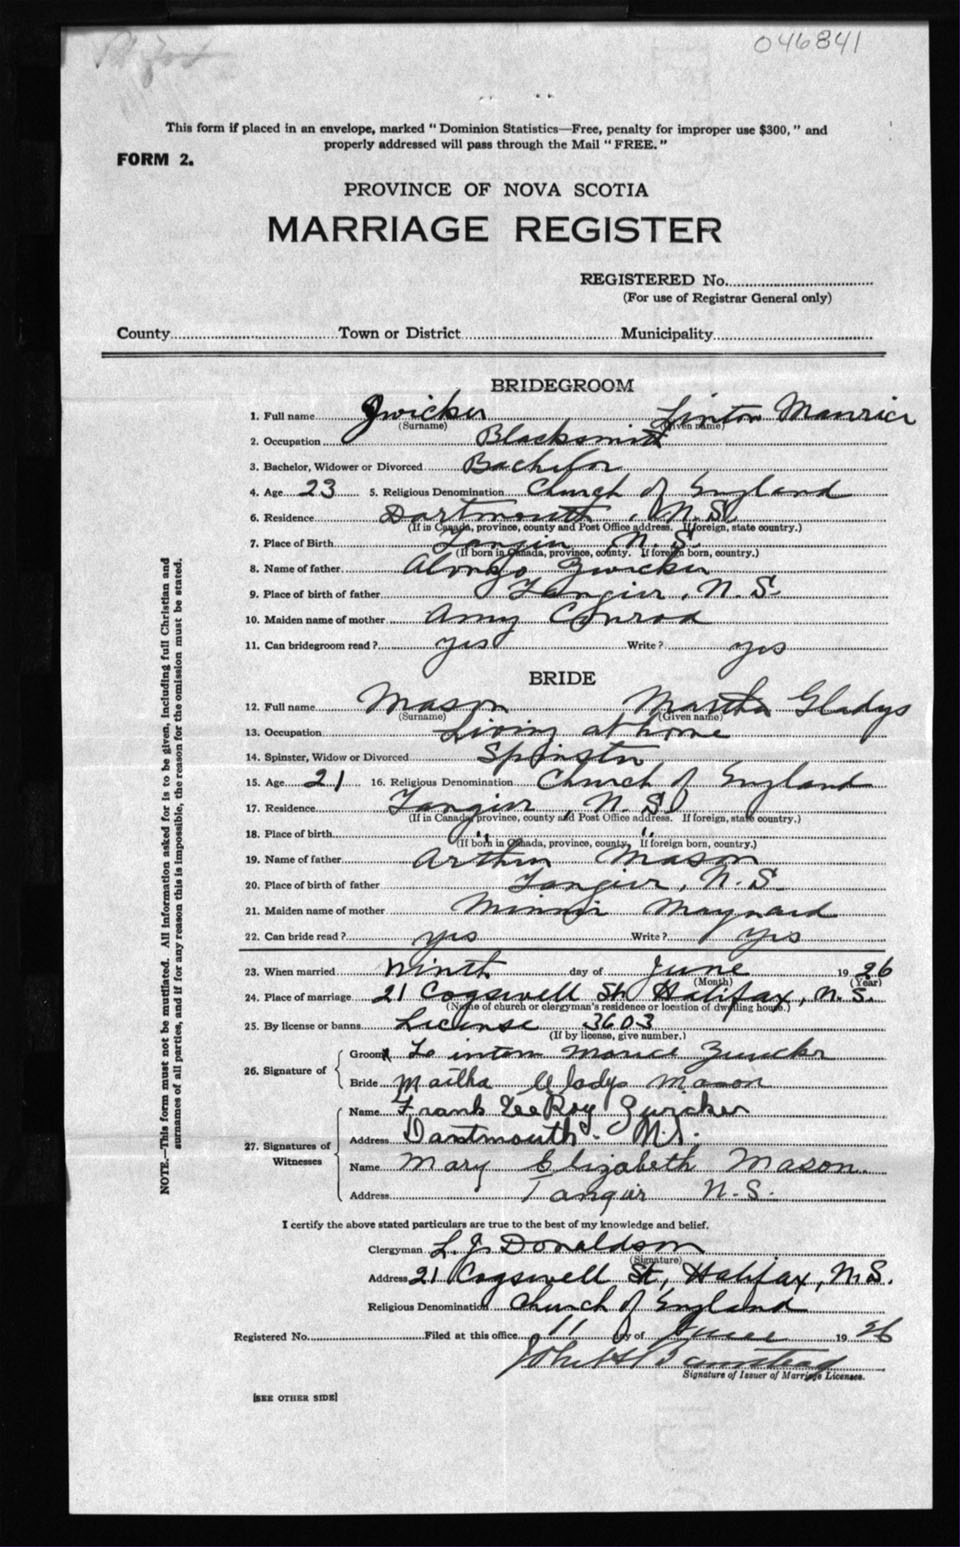 046841
This form if placed in an envelope, marked "Dominion Statistics—Free, penalty for improper use $300," and
properly addressed will pass through the Mail "FREE."
FORM 2.
PROVINCE OF NOVA SCOTIA
MARRIAGE REGISTER
REGISTERED No.
(For use of Registrar General only)
County Town or District Municipality
BRIDEGROOM
1. Full name Zwicker Linton Maurice
(Surname) (Given name)
2. Occupation Blacksmith
3. Bachelor, Widower or Divorced Bachelor
4. Age 23 5. Religious Denomination Church of England
6. Residence Dartmouth, N.S.
(If in Canada, province, county and Post Office address. If foreign, state country.)
7. Place of Birth Tangier N.S.
(If born in Canada, province, county. If foreign born, country.)
8. Name of father Alonzo Zwicker
9. Place of birth of father Tangier, N.S.
10. Maiden name of mother Amy Conrod
11. Can bridegroom read? yes Write? yes
BRIDE
12. Full name Mason Martha Gladys
(Surname) (Given name)
13. Occupation Living at home
14. Spinster, Widow or Divorced Spinster
15. Age 21 16. Religious Denomination Church of England
17. Residence Tangier, N.S.
(If in Canada, province, county and Post Office address. If foreign, state country.)
18. Place of birth " "
(If born in Canada, province, county. If foreign born, country.)
19. Name of father Arthur Mason
20. Place of birth of father Tangier, N.S.
21. Maiden name of mother Minnie Maynard
22. Can bride read? yes Write? yes
23. When married Ninth day of June 1926
(Month) (Year)
24. Place of marriage 21 Cogswell St. Halifax, N.S.
(Name of church or clergyman's residence or location of dwelling house.)
25. By license or banns License 3603
(If by license, give number.)
26. Signature of
Groom Maurice Zwicker
Bride Martha Gladys Mason
27. Signatures of Witnesses
Name Frank LeeRoy Zwicker
Address Dartmouth. N.S.
Name Mary Elizabeth Mason.
Address Tangier N.S.
I certify the above stated particulars are true to the best of my knowledge and belief.
Clergyman L. J. Donaldson
(Signature)
Address 21 Cogswell St., Halifax, N.S.
Religious Denomination Church of England
Registered No. Filed at this office 11 day of June 1926
Signature of Issuer of Marriage Licenses.
[SEE OTHER SIDE]
NOTE.—This form must not be mutilated. All information asked for is to be given, including full Christian and
surnames of all parties, and if for any reason this is impossible, the reason for the omission must be stated.